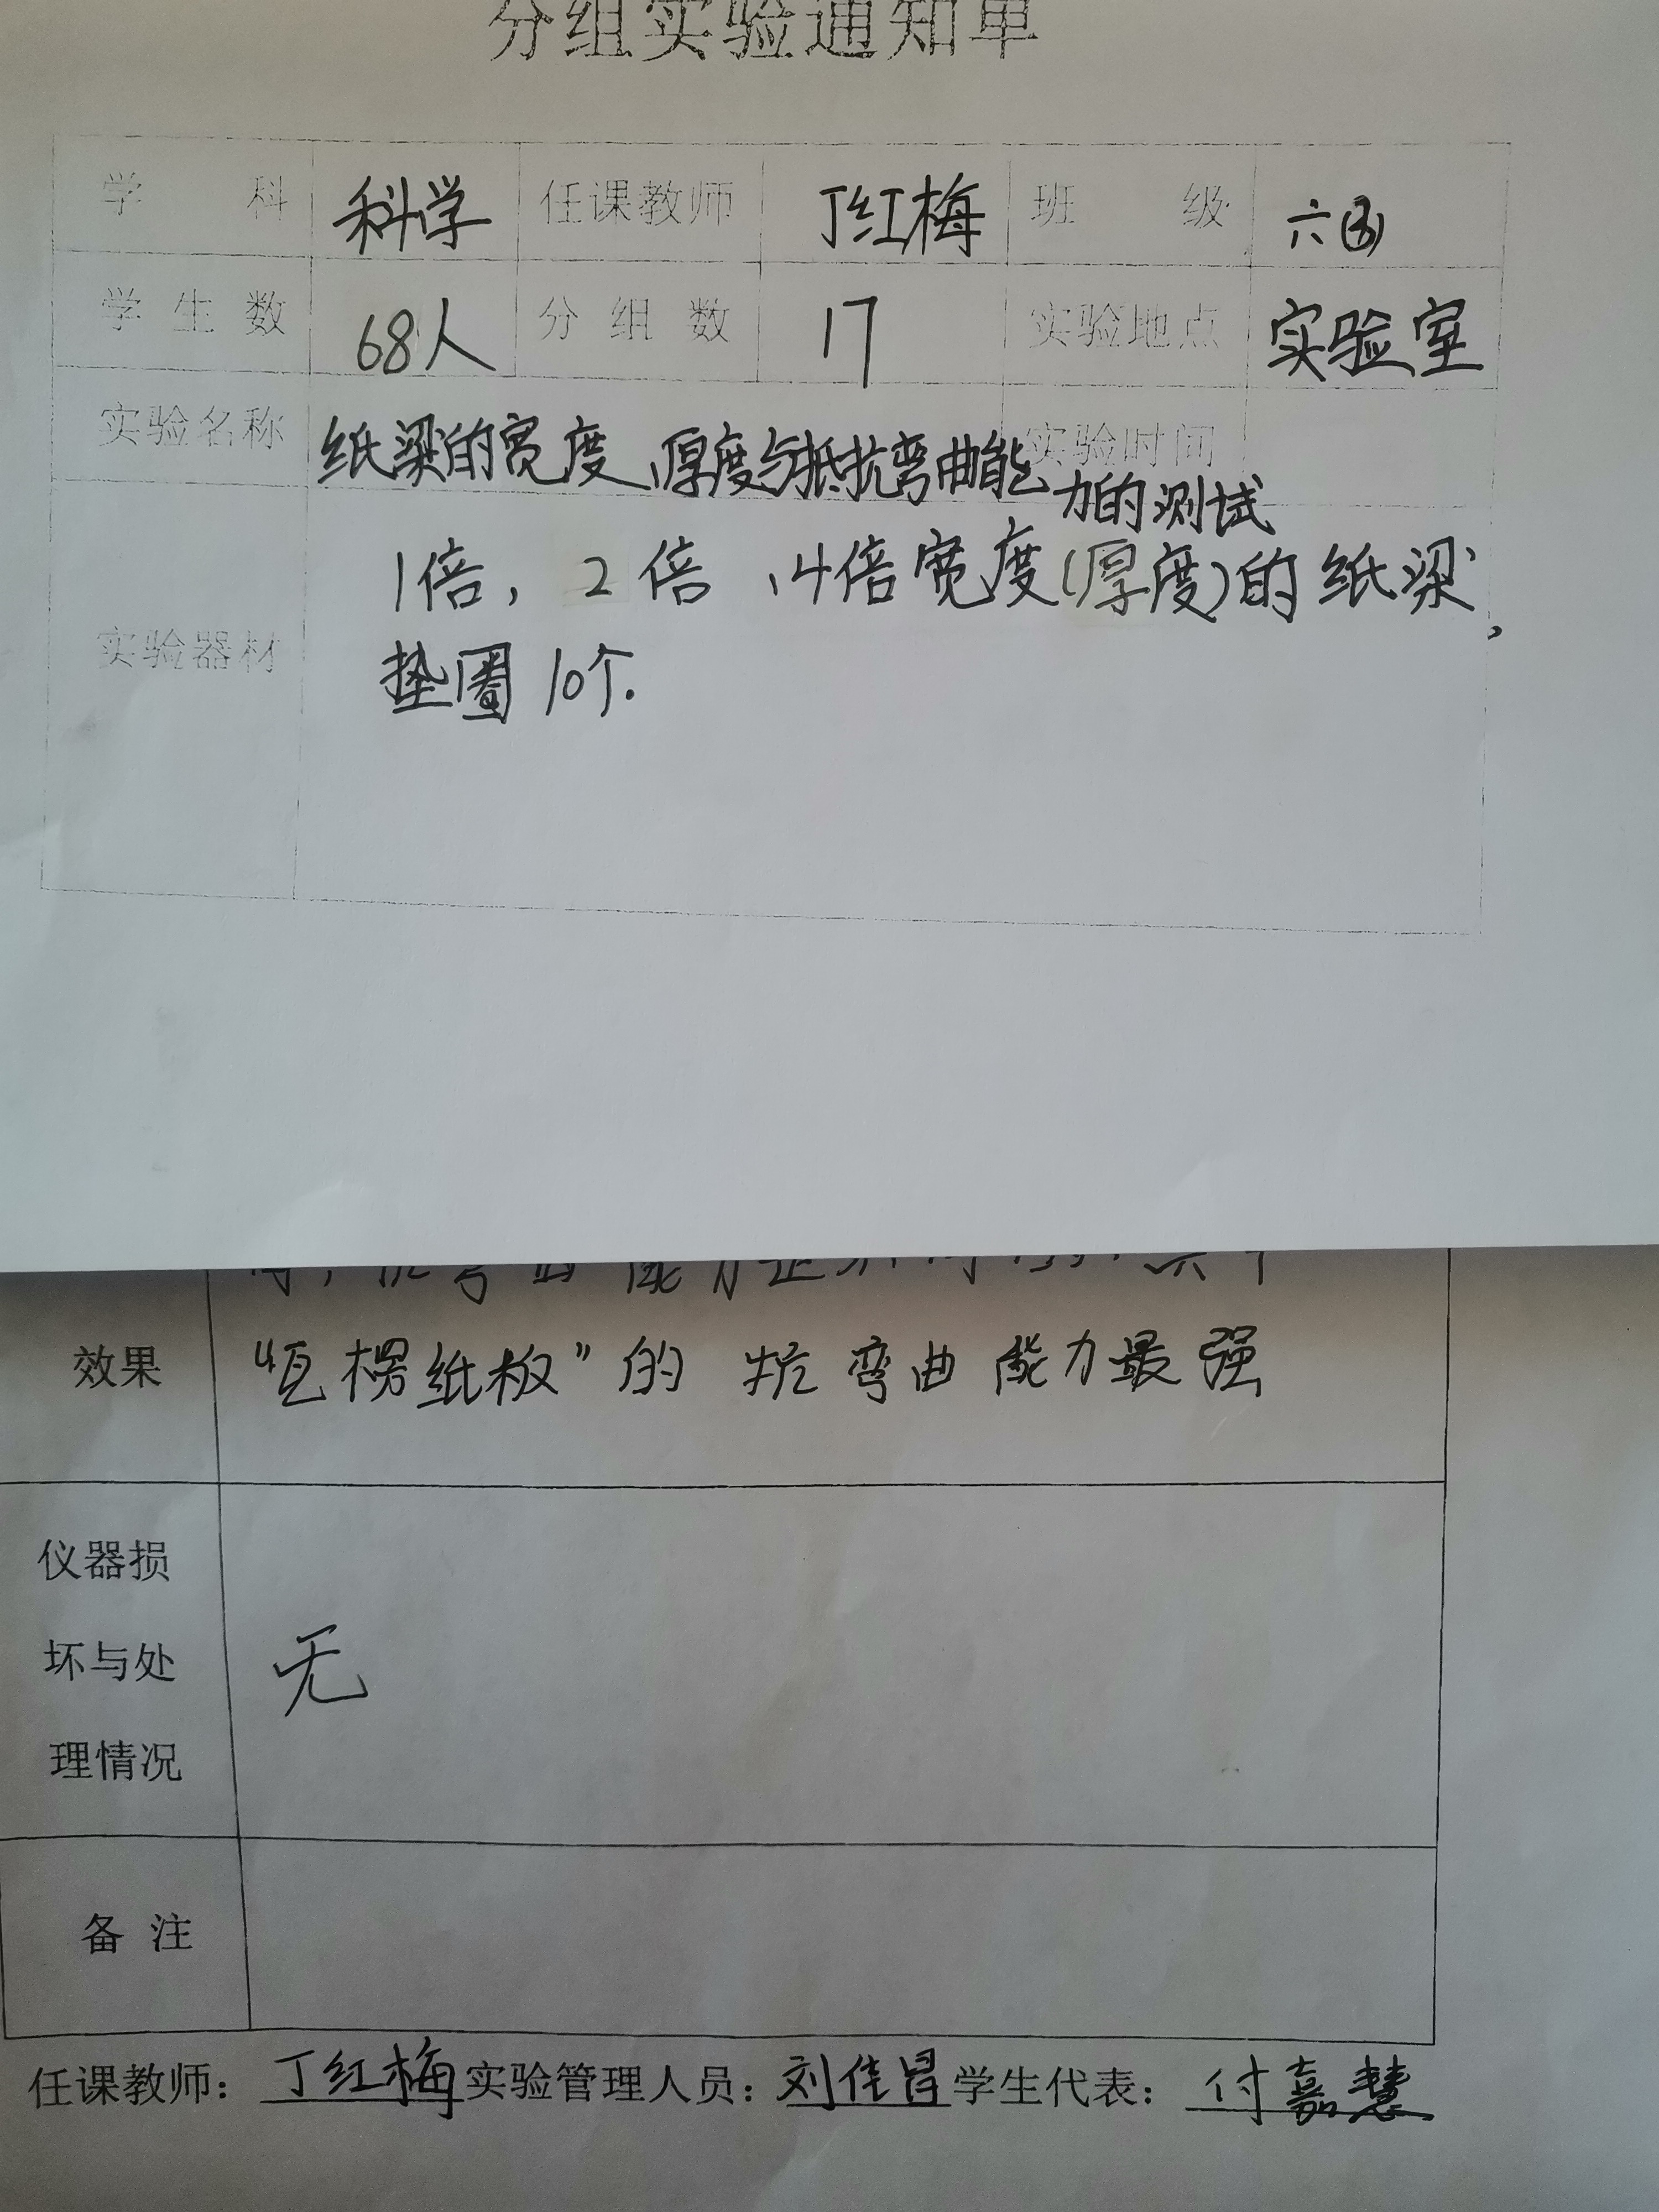 分组实验通知单
学 科 科学 任课教师 丁红梅 班 级 六(3)
学 生 数 68人 分 组 数 17 实验地点 实验室
实验名称 纸梁的宽度、厚度与抵抗弯曲能力的测试 实验时间
实验器材 1倍,2倍、4倍宽度(厚度)的纸梁,
垫圈10个.
效果 “瓦楞纸板”的抗弯曲能力最强
仪器损
坏与处
理情况
无
备 注
任课教师:丁红梅 实验管理人员:刘佳昌 学生代表:付嘉慧